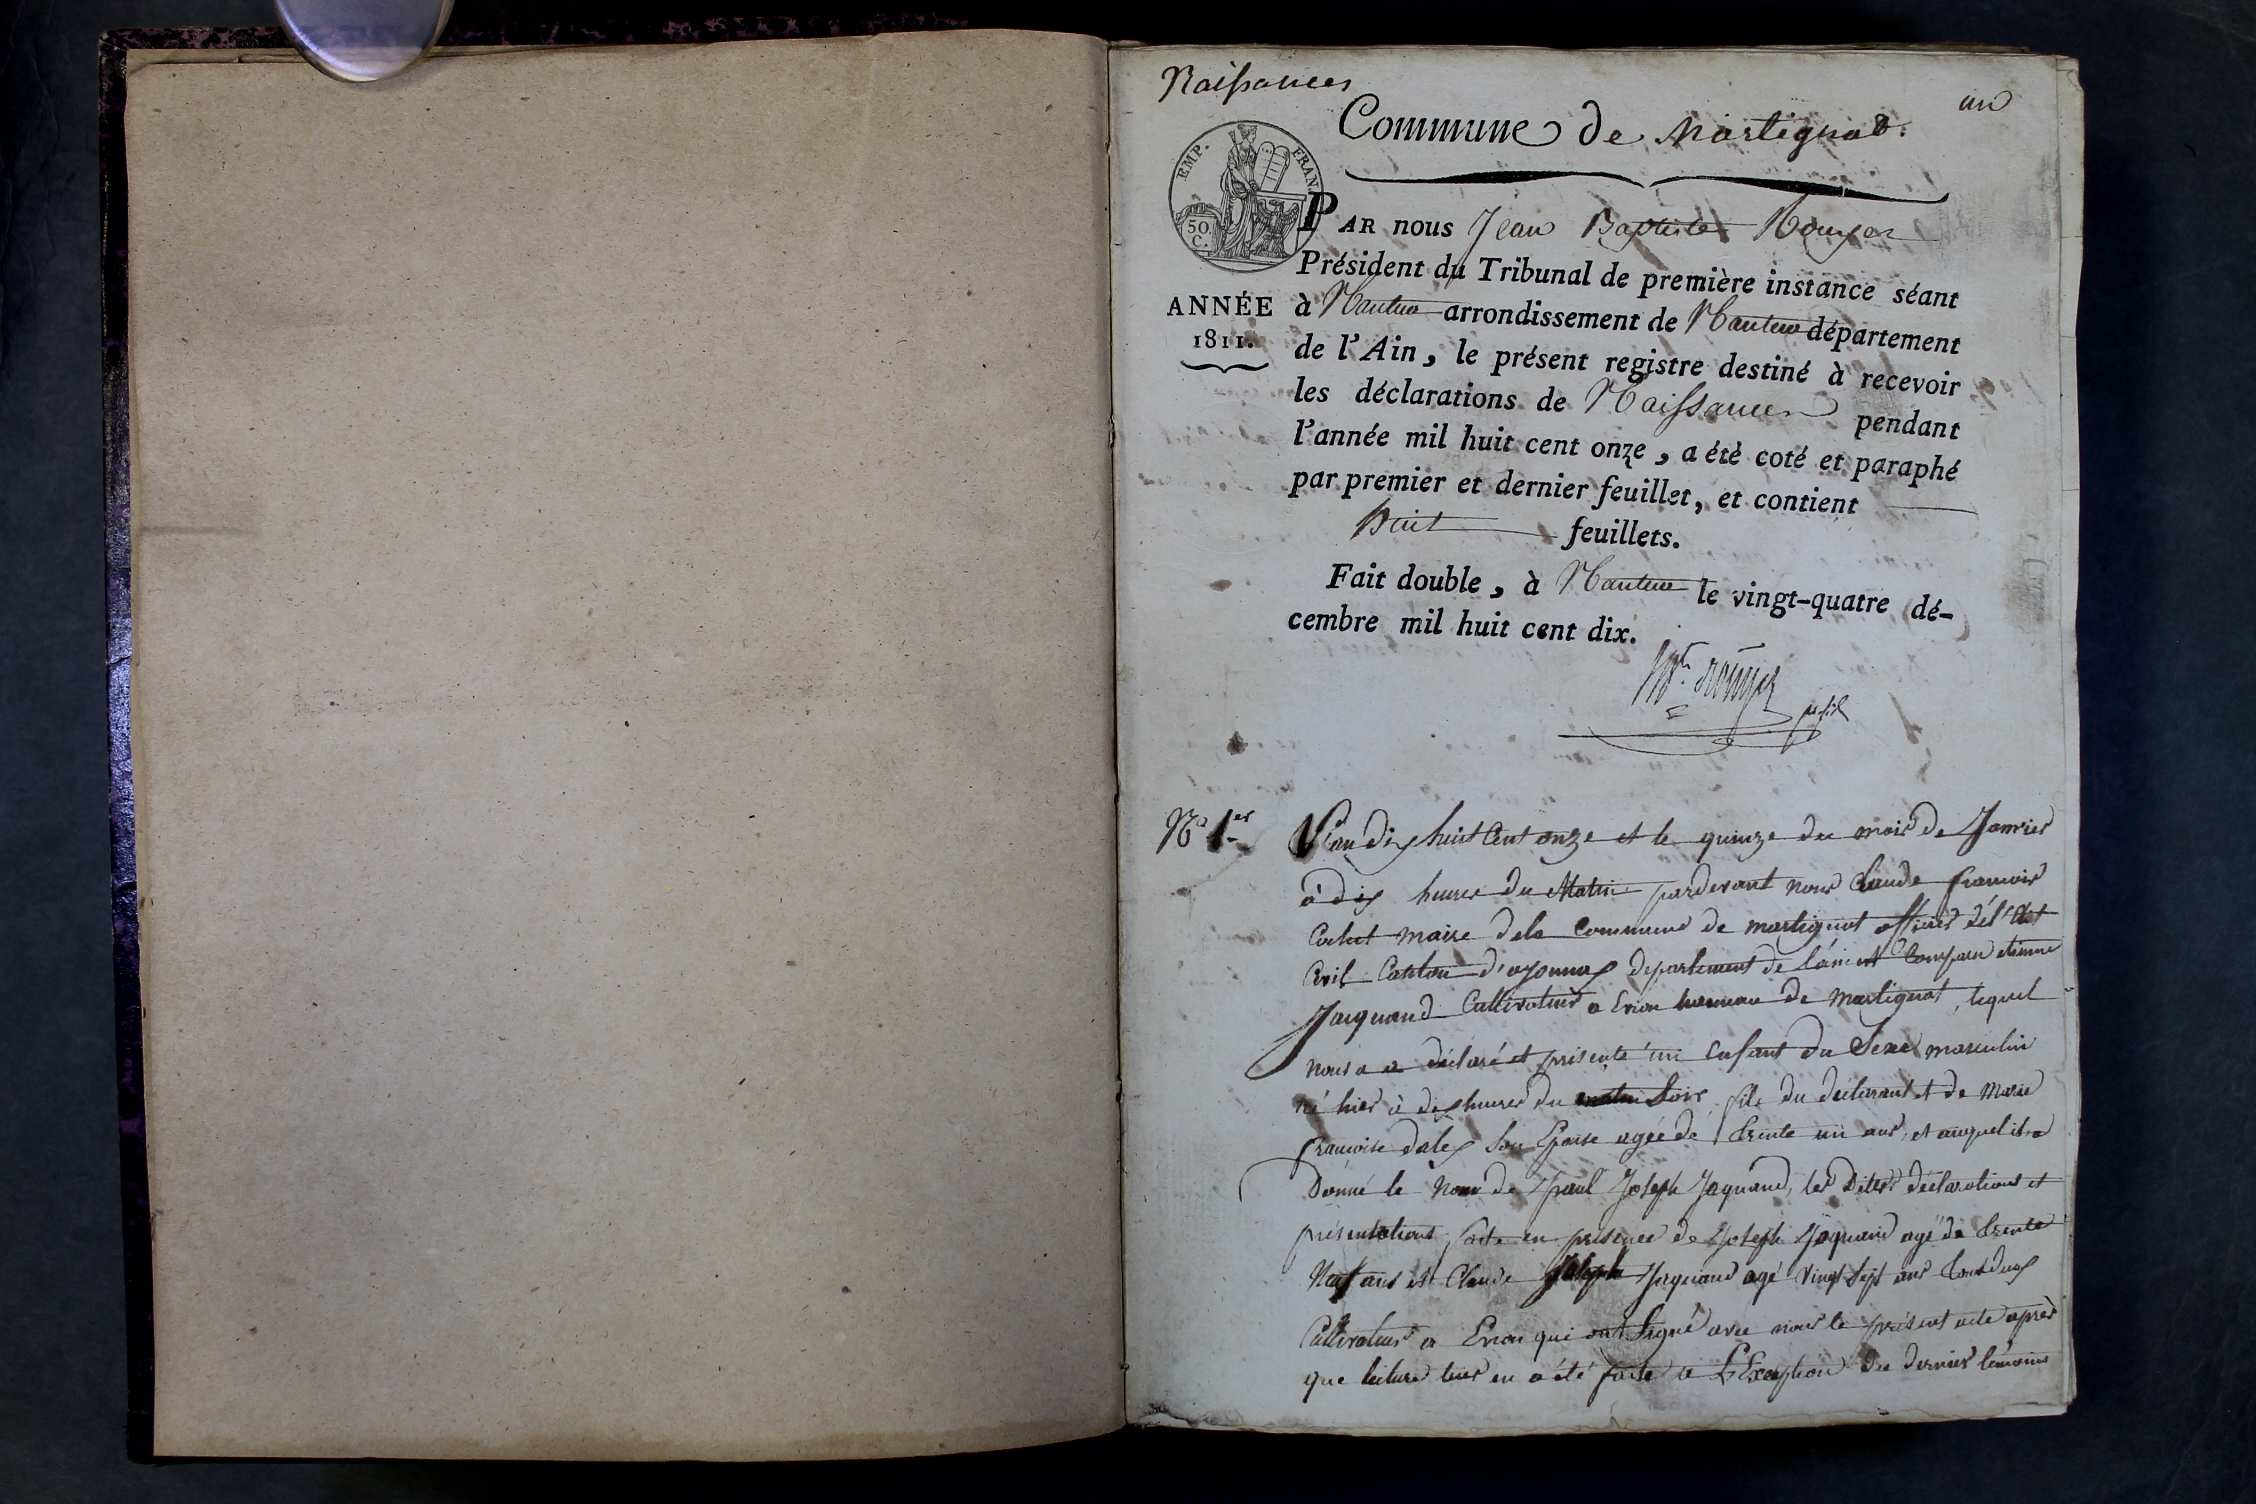 Naissances
un
Commune de Martignat.
EMP. FRAN.
50 C.
PAR nous Jean Baptiste Rouyer
Président du Tribunal de première instance séant
ANNÉE
1811.
à Nantua arrondissement de Nantua département
de l'Ain, le présent registre destiné à recevoir
les déclarations de Naissances pendant
l'année mil huit cent onze, a été coté et paraphé
par premier et dernier feuillet, et contient
huit feuillets.
Fait double, à Nantua le vingt-quatre dé-
cembre mil huit cent dix.
rouyer
N° 1er
L'an dix huit Cent onze et le quinze du mois de Janvier
à dix heures du Matin pardevant nous Claude francois
maire dela Commune de martignat officier dél'Etat
Civil Canton d'oyonnax departement de l'ain est Comparu etienne
Jacquand Cultivateur a Evron hameau de Martignat, lequel
nous a declaré et présenté un Enfant du Sexe masculin
né hier à dix heures du matin Soir fils du declarant et de Marie
francoise dalex Son Epouse agée de trente un ans, et auquel il a
Donné le Nom de paul Joseph Jaquand, les Dittes déclarations et
présentations faite en présence de Joseph Jaquand agé de trente
Neuf ans et Claude Joseph Jaquand agé vingt Sept ans tous deux
Cultivateurs a Evron qui ont Signé avec nous le présent acte après
que lecture leur en a été faite a L'Exception du dernier témoins